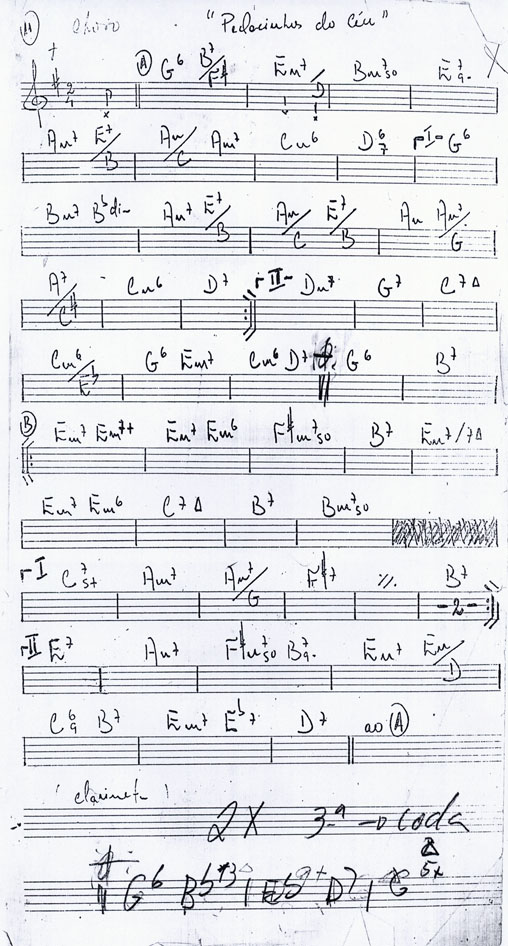 11 choro "Pedacinhos do Céu"
2/4 P A G6 B7/F# Em7 /D Bm7 5o E7 9-
Am7 E7/B Am/C Am7 Cm6 D6 7 I- G6
Bm7 Bbdim Am7 E7/B Am/C E7/B Am Am7/G
A7/C# Cm6 D7 II- Dm7 G7 C7Δ
Cm6/Eb G6 Em7 Cm6 D7 G6 B7
B Em7 Em7+ Em7 Em6 F#m7 5o B7 Em7/7Δ
Em7 Em6 C7Δ B7 Bm7 5o
I C7 5+ Am7 Am7/G F#7 ٪ B7 -2-
II E7 Am7 F#m7 5o B7 9- Em7 Em/D
C6 9 B7 Em7 Eb7 D7 ao A
( clarineta )
2X 3ª → coda
G6 | D7 | G
5x